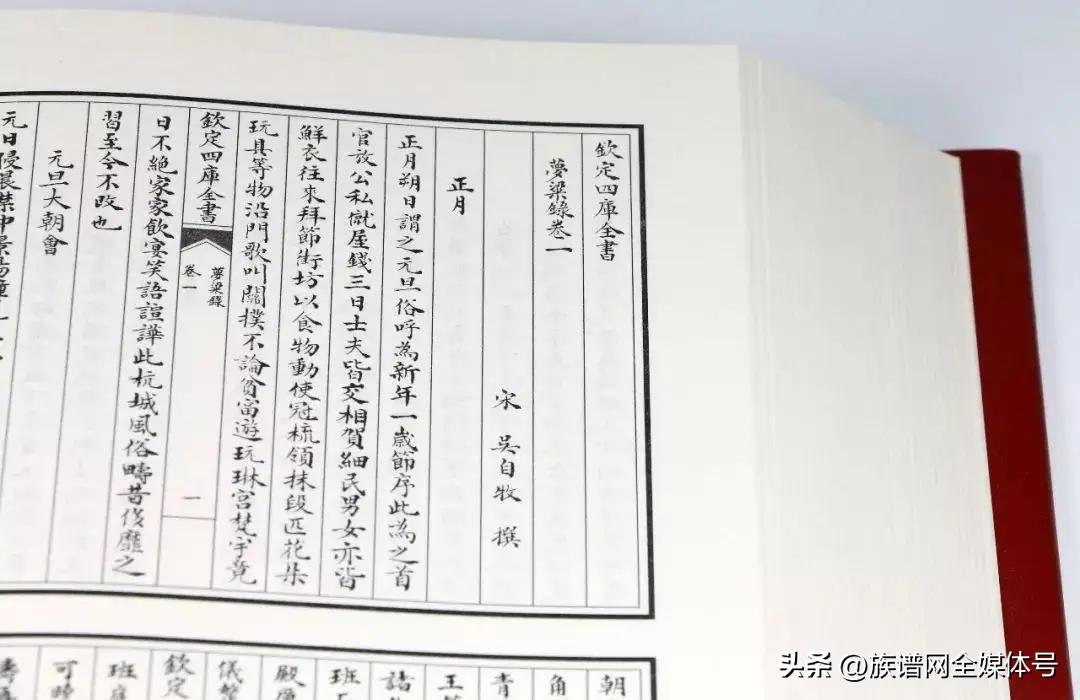 欽定四庫全書
夢粱錄卷一
宋 吳自牧 撰
正月
正月朔日謂之元旦俗呼為新年一歲節序此為之首
官放公私僦屋錢三日士夫皆交相賀細民男女亦皆
鮮衣往來拜節街坊以食物動使冠梳領抹段匹花朵
玩具等物沿門歌叫關撲不論貧富遊玩琳宮梵宇竟
欽定四庫全書
夢粱錄
卷一
一
日不絕家家飲宴笑語諠譁此杭城風俗疇昔侈靡之
習至今不改也
元旦大朝會
元日侵晨禁中景陽鐘
朝
角
青
王
諸
班
殿
儀
欽定
班
可
頭条 @族谱网全媒体号